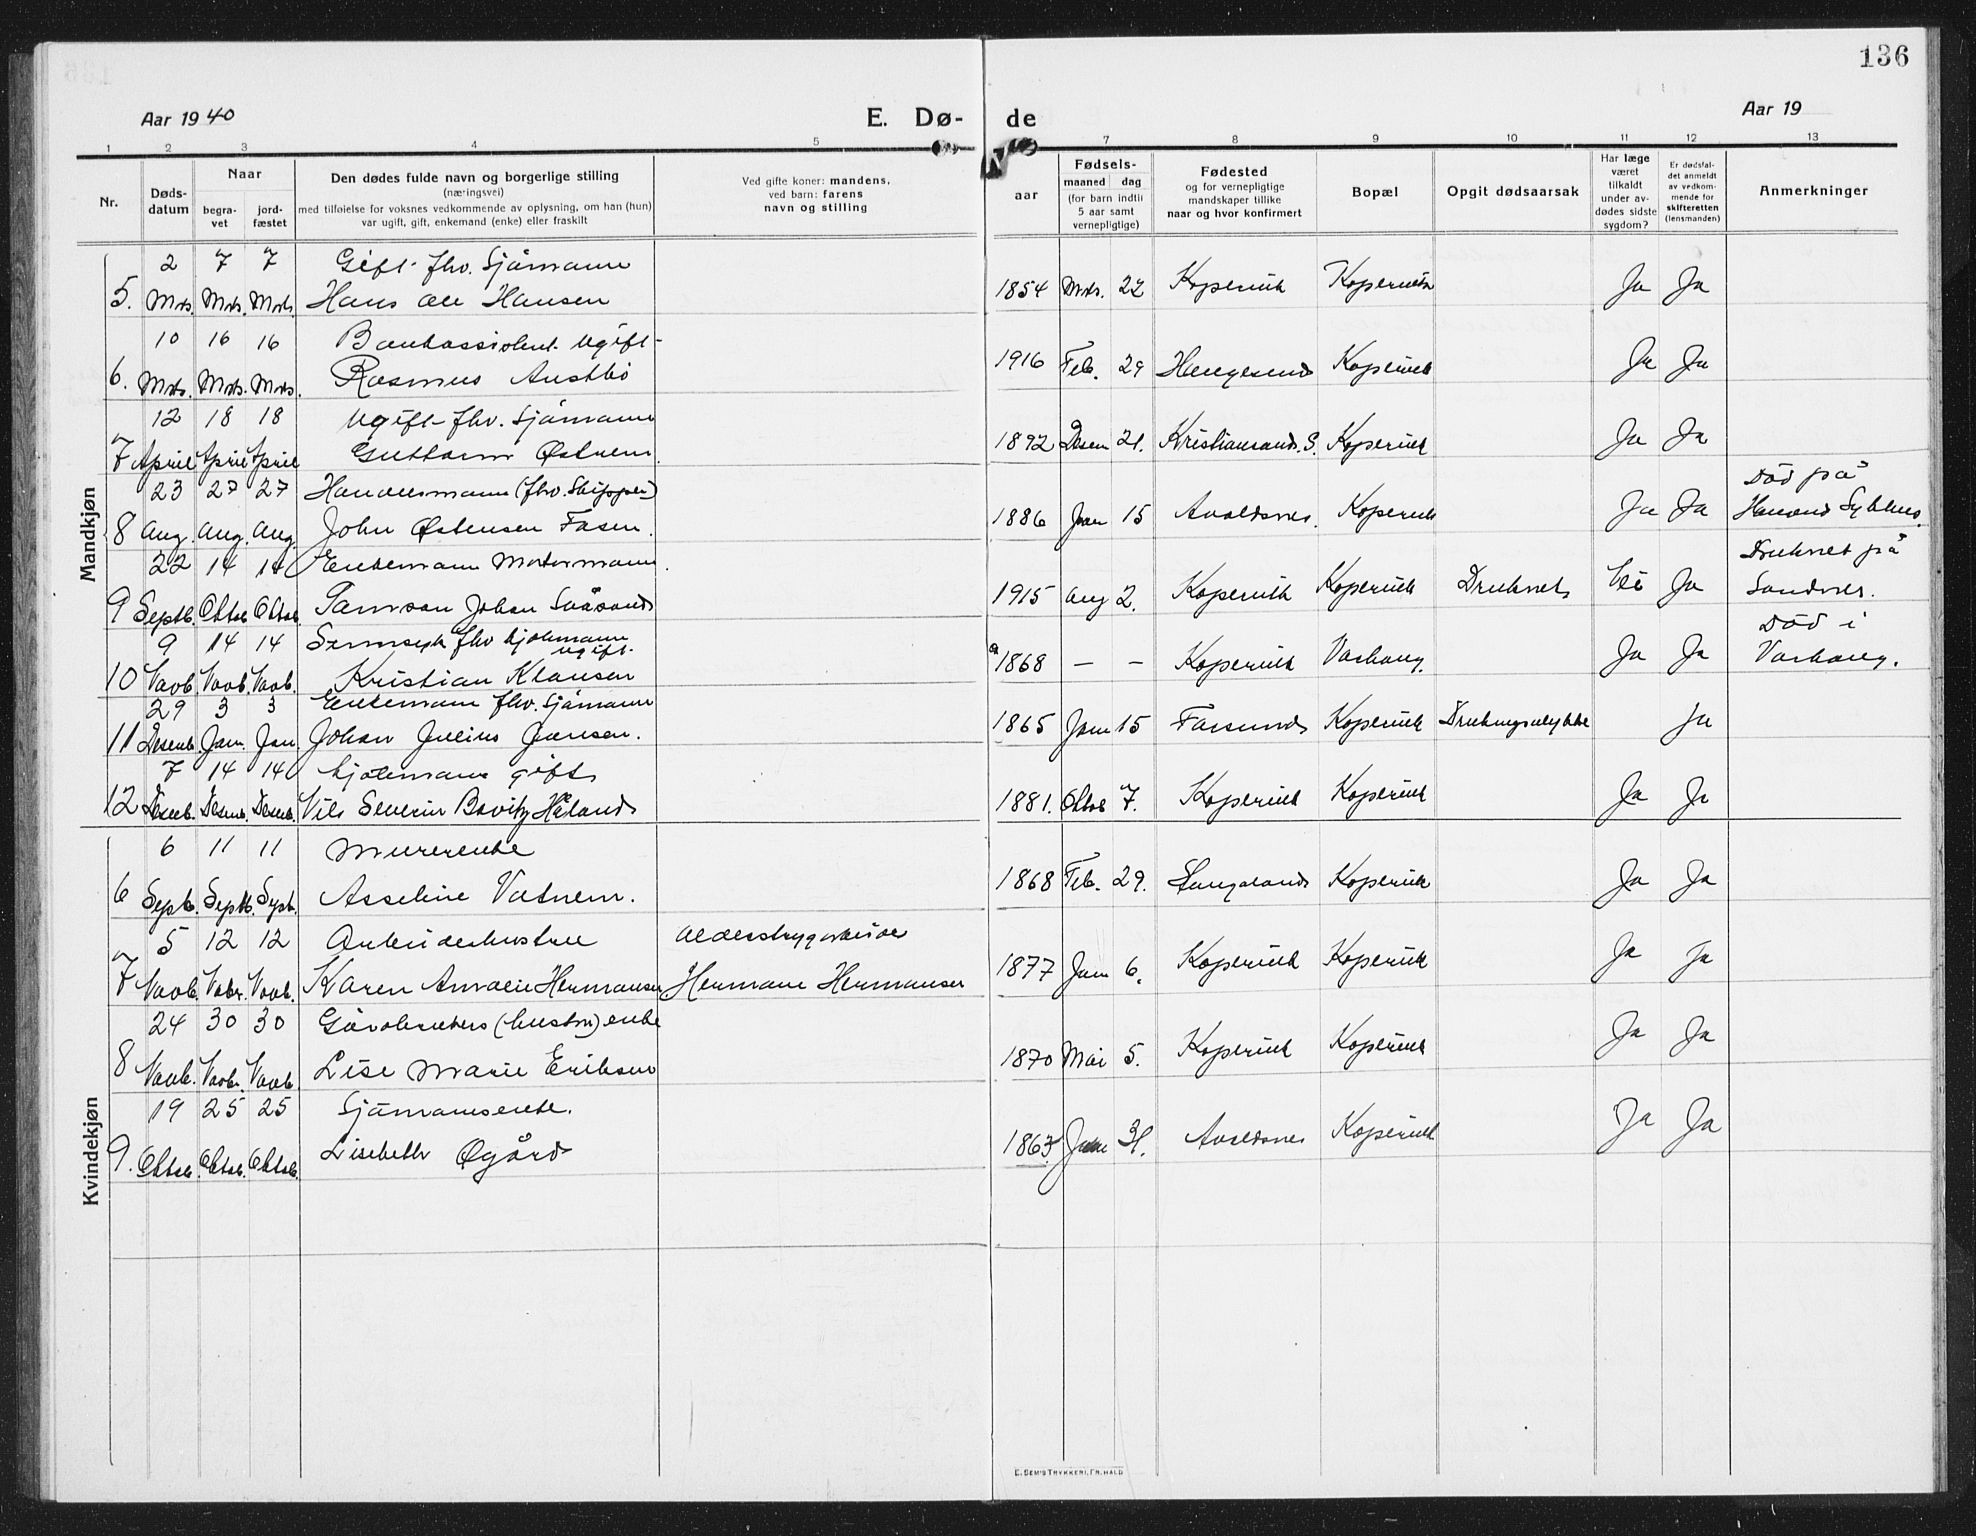 136
Aar 1940
E. Dø-
de
Aar 19
1 2 3 4 5 7 8 9 10 11 12 13
Nr.
Døds-
datum
Naar
begra-
vet
jord-
fæstet
Den dødes fulde navn og borgerlige stilling
(næringsvei)
med tilføielse for voksnes vedkommende av oplysning, om han (hun)
var ugift, gift, enkemand (enke) eller fraskilt
Ved gifte koner: mandens,
ved barn: farens
navn og stilling
aar
Fødsels-
maaned dag
(for barn indtil
5 aar samt
vernepligtige)
Fødested
og for vernepligtige
mandskaper tillike
naar og hvor konfirmert
Bopæl
Opgit dødsaarsak
Har læge
været
tilkaldt
under av-
dødes sidste
sygdom?
Er dødsfal-
det anmeldt
av vedkom-
mende for
skifteretten
(lensmanden)
Anmerkninger
Mandkjøn
2 7 7 Gift fhv. Sjømann
5. Mrts. Mrts. Mrts. Hans Ole Hansen 1854 Mrts. 22 Kopervik Kopervik Ja Ja
10 16 16 Bankassistent ugift
6. Mrts. Mrts. Mrts. Rasmus Austbö 1916 Feb. 29 Haugesund Kopervik Ja Ja
12 18 18 Ugift fhv. Sjømann
7 April April April Guttorm Østrem. 1892 Desem 21. Kristiansand. S. Kopervik Ja Ja
23 27 27 Handelsmann (fhv. Skipper)
8 Aug. Aug. Aug John Østensen Fasen. 1886 Jan 15 Avaldsnes. Kopervik Ja Ja
Död på
Haugesund Sykehus.
22 14 14 Enkemann Motormann.
9 Septb. Oktob Oktob. Johan 1915 Aug 2. Kopervik Kopervik Druknet Nei Ja
Druknet på
Sandnes.
9 14 14 fhv ugift.
10 Novb. Novb. Novb. Kristian Klausen 1868 — — Kopervik Varhaug. Ja Ja
Död i
Varhaug.
29 3 3 Enkemann fhv. Sjømann
11 Desemb. Jan. Jan. Johan Julius Jensen. 1865 Jan 15 Farsund Kopervik Drukningsulykke Ja
7 14 14 gift
12 Desemb. Desemb. Desemb. Nils Severin Håland 1881. Oktob 7. Kopervik Kopervik Ja Ja
Kvindekjøn
6 11 11 Murerenke
6 Septb. Septb. Septb. Asseline Vatnem. 1868 Feb. 29. Kopervik Ja Ja
5 12 12 Arbeiderhustru Alderstrygd arbeider
7 Novb. Nobr. Novb. Karen Amalie Hermansen Hermann Hermansen 1877 Jan 6. Kopervik Kopervik Ja Ja
24 30 30 (hustru) enke
8 Novb. Novbr. Novb. Lise Marie Eriksen 1870 Mai 5. Kopervik Kopervik Ja Ja
19 25 25 Sjømannsenke.
9. Oktob. Oktob. Oktob. Lisebeth Øgård 1863 31. Avaldsnes Kopervik Ja Ja
E. SEM'S TRYKKERI, FR. HALD